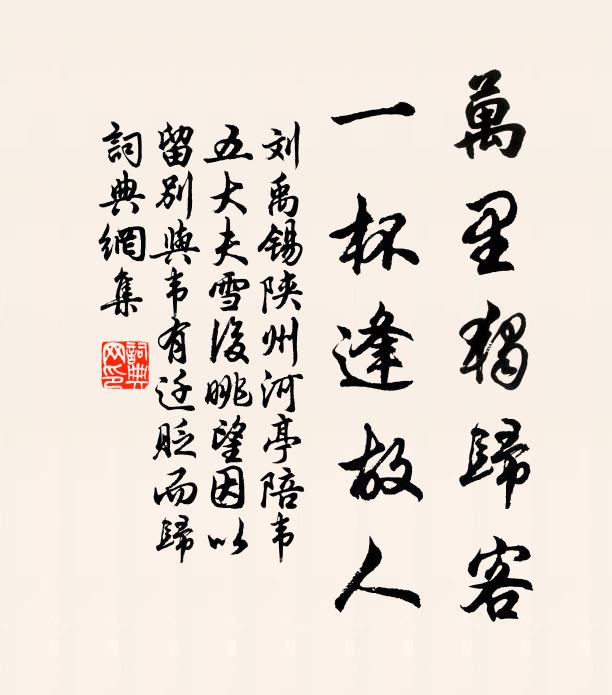 萬里獨歸客
一杯逢故人
刘禹锡陕州河亭陪韦
五大夫雪後眺望因以
留别與韦有迁贬而歸
詞典網集
詞典
网印